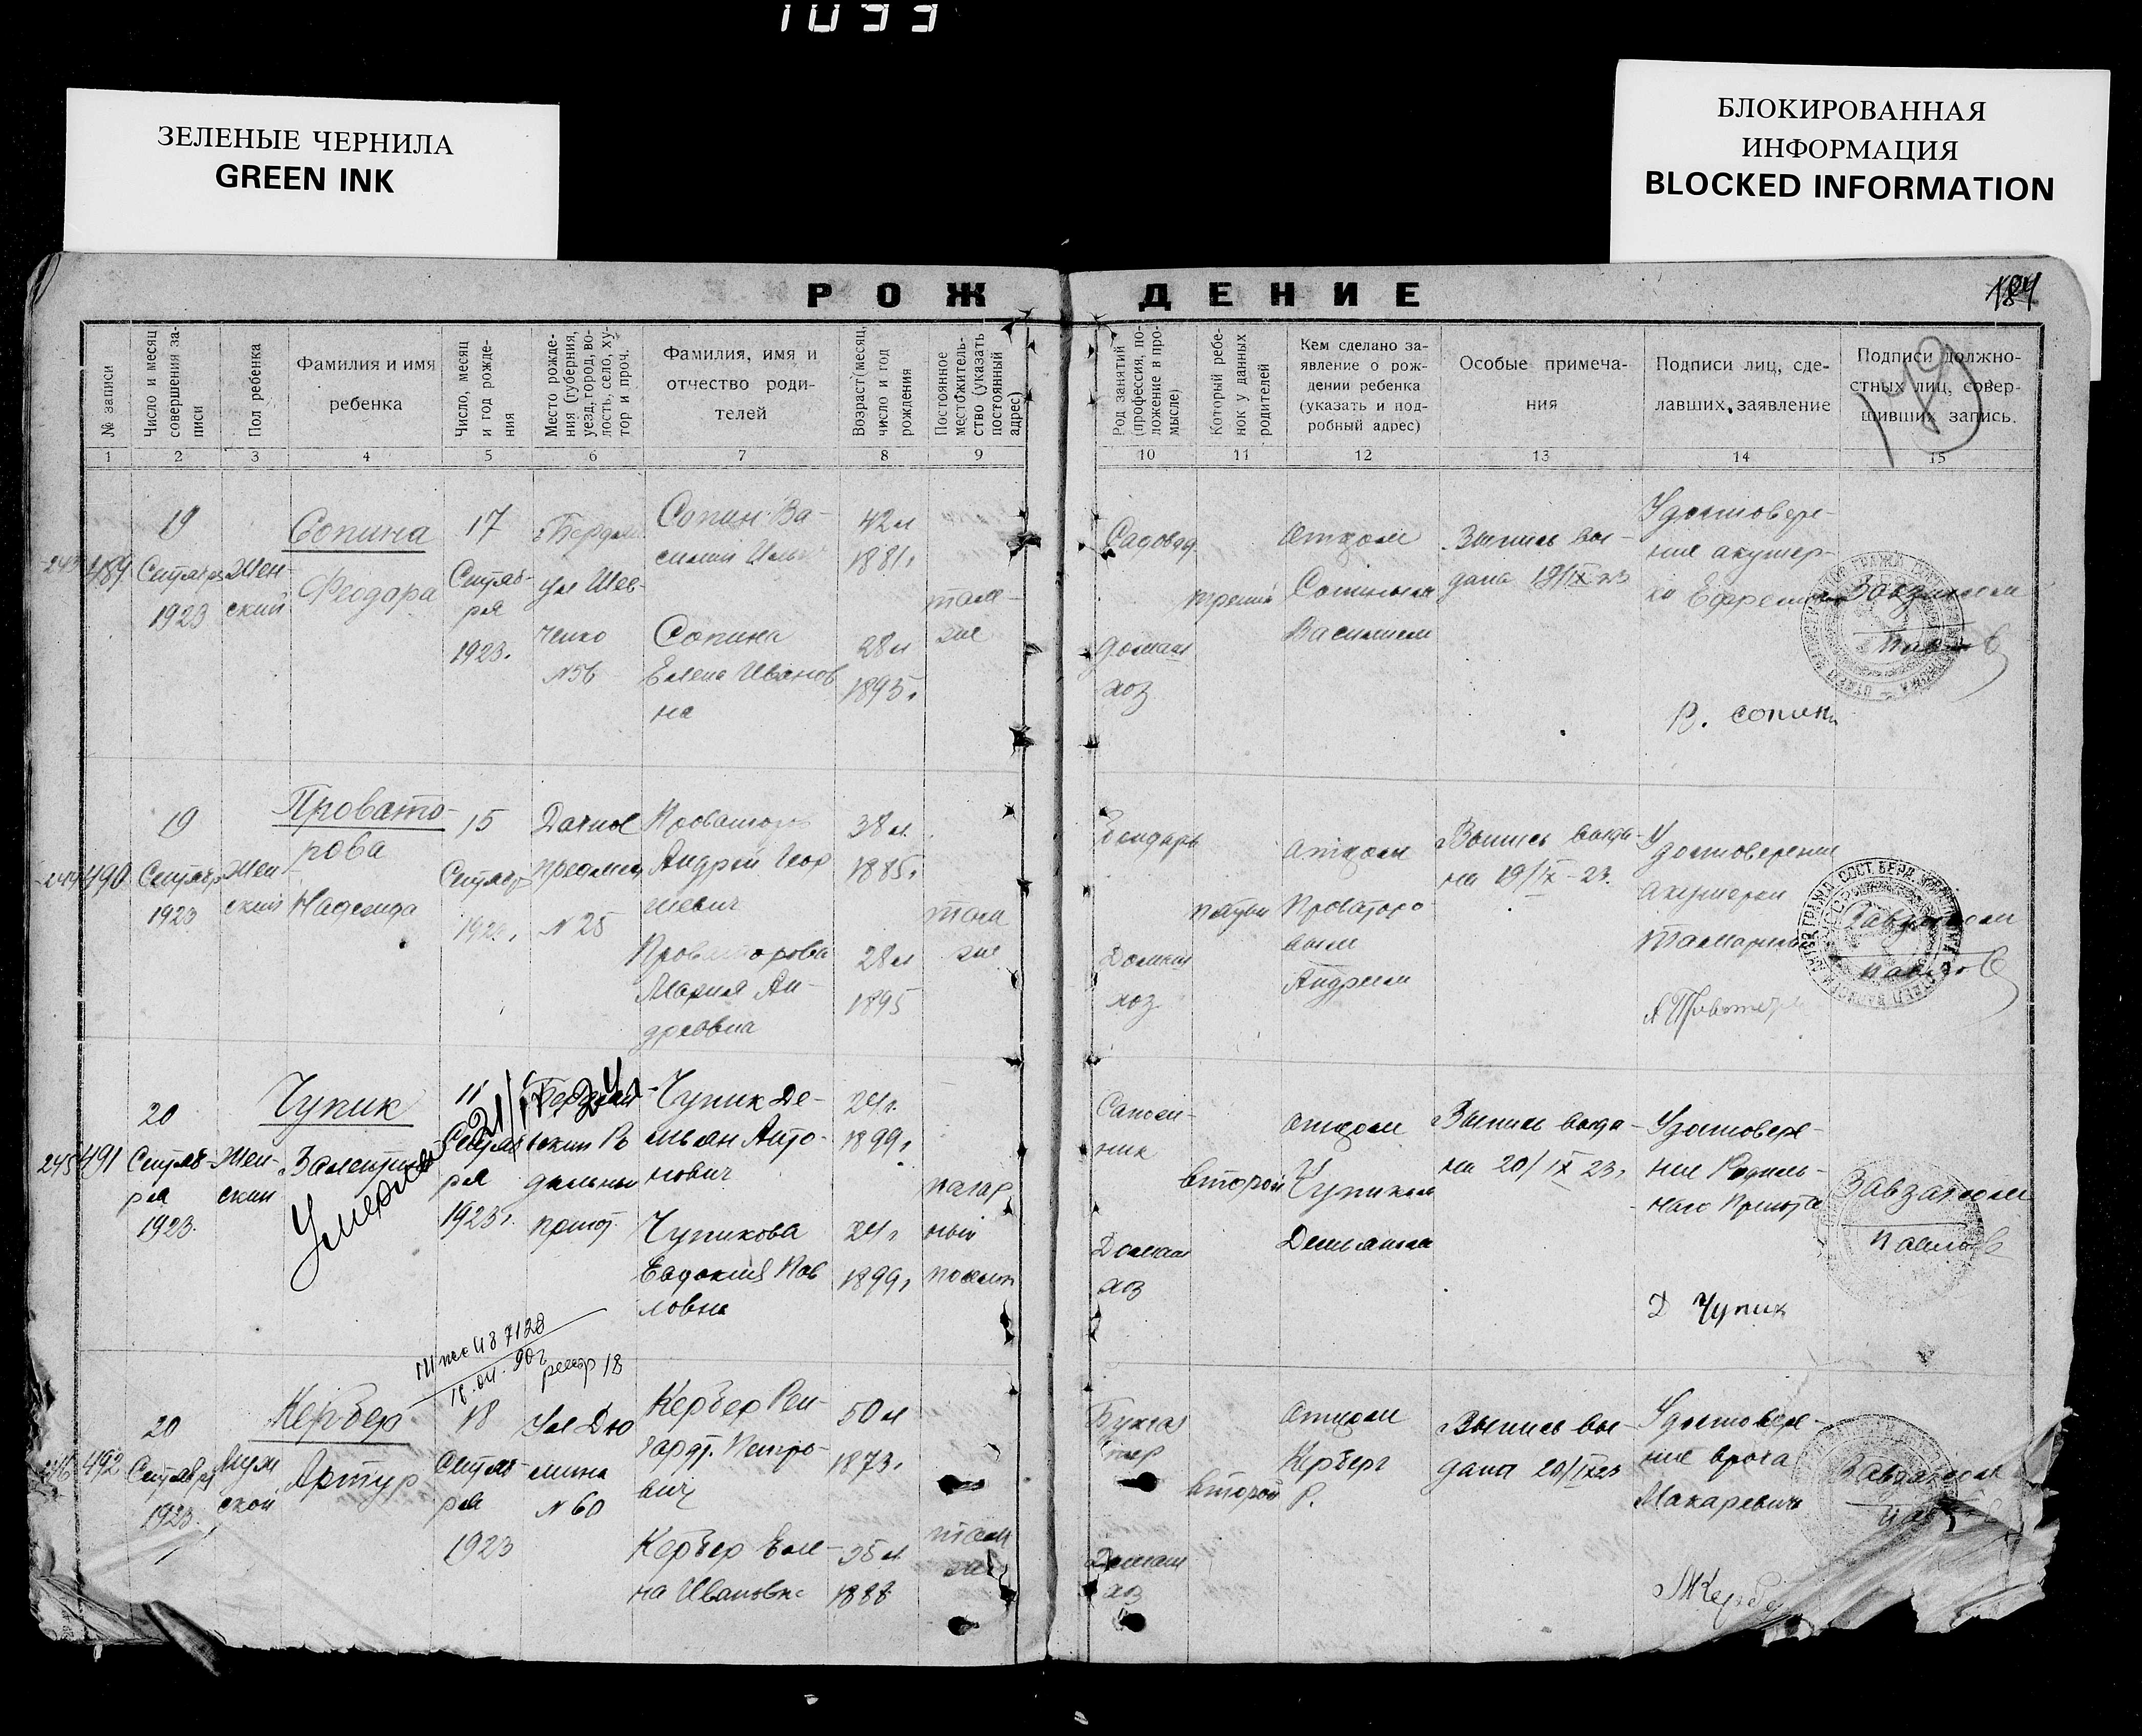 1033
ЗЕЛЕНЫЕ ЧЕРНИЛА
GREEN INK
БЛОКИРОВАННАЯ
ИНФОРМАЦИЯ
BLOCKED INFORMATION
РОЖДЕНИЕ
184
179
№ записи
Число и месяц
совершения за-
писи
Пол ребенка
Фамилия и имя
ребенка
Число, месяц
и год рожде-
ния
Место рожде-
ния (губерния,
уезд, город, во-
лость, село, ху-
тор и проч.
Фамилия, имя и
отчество роди-
телей
Возраст (месяц,
число и год
рождения
Постоянное
местожитель-
ство (указать
постоянный
адрес)
Род занятий
(профессия, по-
ложение в про-
мысле)
Который ребе-
нок у данных
родителей
Кем сделано за-
явление о рож-
дении ребенка
(указать и под-
робный адрес)
Особые примеча-
ния
Подписи лиц, сде-
лавших заявление
Подписи должно-
стных лиц, совер-
шивших запись.
1 2 3 4 5 6 7 8 9 10 11 12 13 14 15
243 489
19
1923
Жен-
ский
Сопина
Феодара
17
Сентяб-
ря
1923.
ул Шев-
ченко
№56
Сопин Ва-
силий
Сопина
Елена Иванов
на
42л
1881г
28л
1895г
там
же
Садовод
домаш
хоз
третий
Отцом
Сопиным
Василием
Выпись вы-
дана 19/IX 23
Удостовере-
ние акушер-
ки
Завзагсом
В. сопин
244 490
19
1923
Жен
ский
Провато-
рова
Надежда
15
№25
Андрей Геор
гиевич
Проваторова
Мария Ан-
дреевна
38л.
1885г
28л
1895
там
же
Бондарь
Домаш
хоз
пятый
Отцом
Проваторо
вым
Андреем
Выпись выда-
на 19/IX-23.
Удостоверение
акушерки
Завзагсом
245 491
20
Сентяб-
ря
1923.
Жен-
ский
Чупик
Валентина
Умерла
21/IV 24г
11
Сентяб
ря
1923г.
дильный
приют
Чупик Де-
мьян Анто-
нович
Чупикова
Евдокия Пав
ловна
24г.
1899г
24г
1899г
Сапож-
ник
Домаш
хоз
второй
Отцом
Чупиком
Демьяном
Выпись выда-
на 20/IX 23г
Удостовере-
ние Родиль-
наго Приюта
Завзагсом
Павлов
Д Чупик
18.04.90г
246 492
20
1923.
Муж
ской
Кербер
Артур
18
Сентяб-
ря
1923
Ул Дю
мина
№60
Кербер Рей-
Петро-
вич
Кербер Еле-
на Ивановна
50л
1873г
35л
1888
там
же
Домаш
хоз
второй
Отцом
Р.
Выпись вы-
дана 20/IX23
Удостовере-
ние врача
Макаревич
Завзагсом